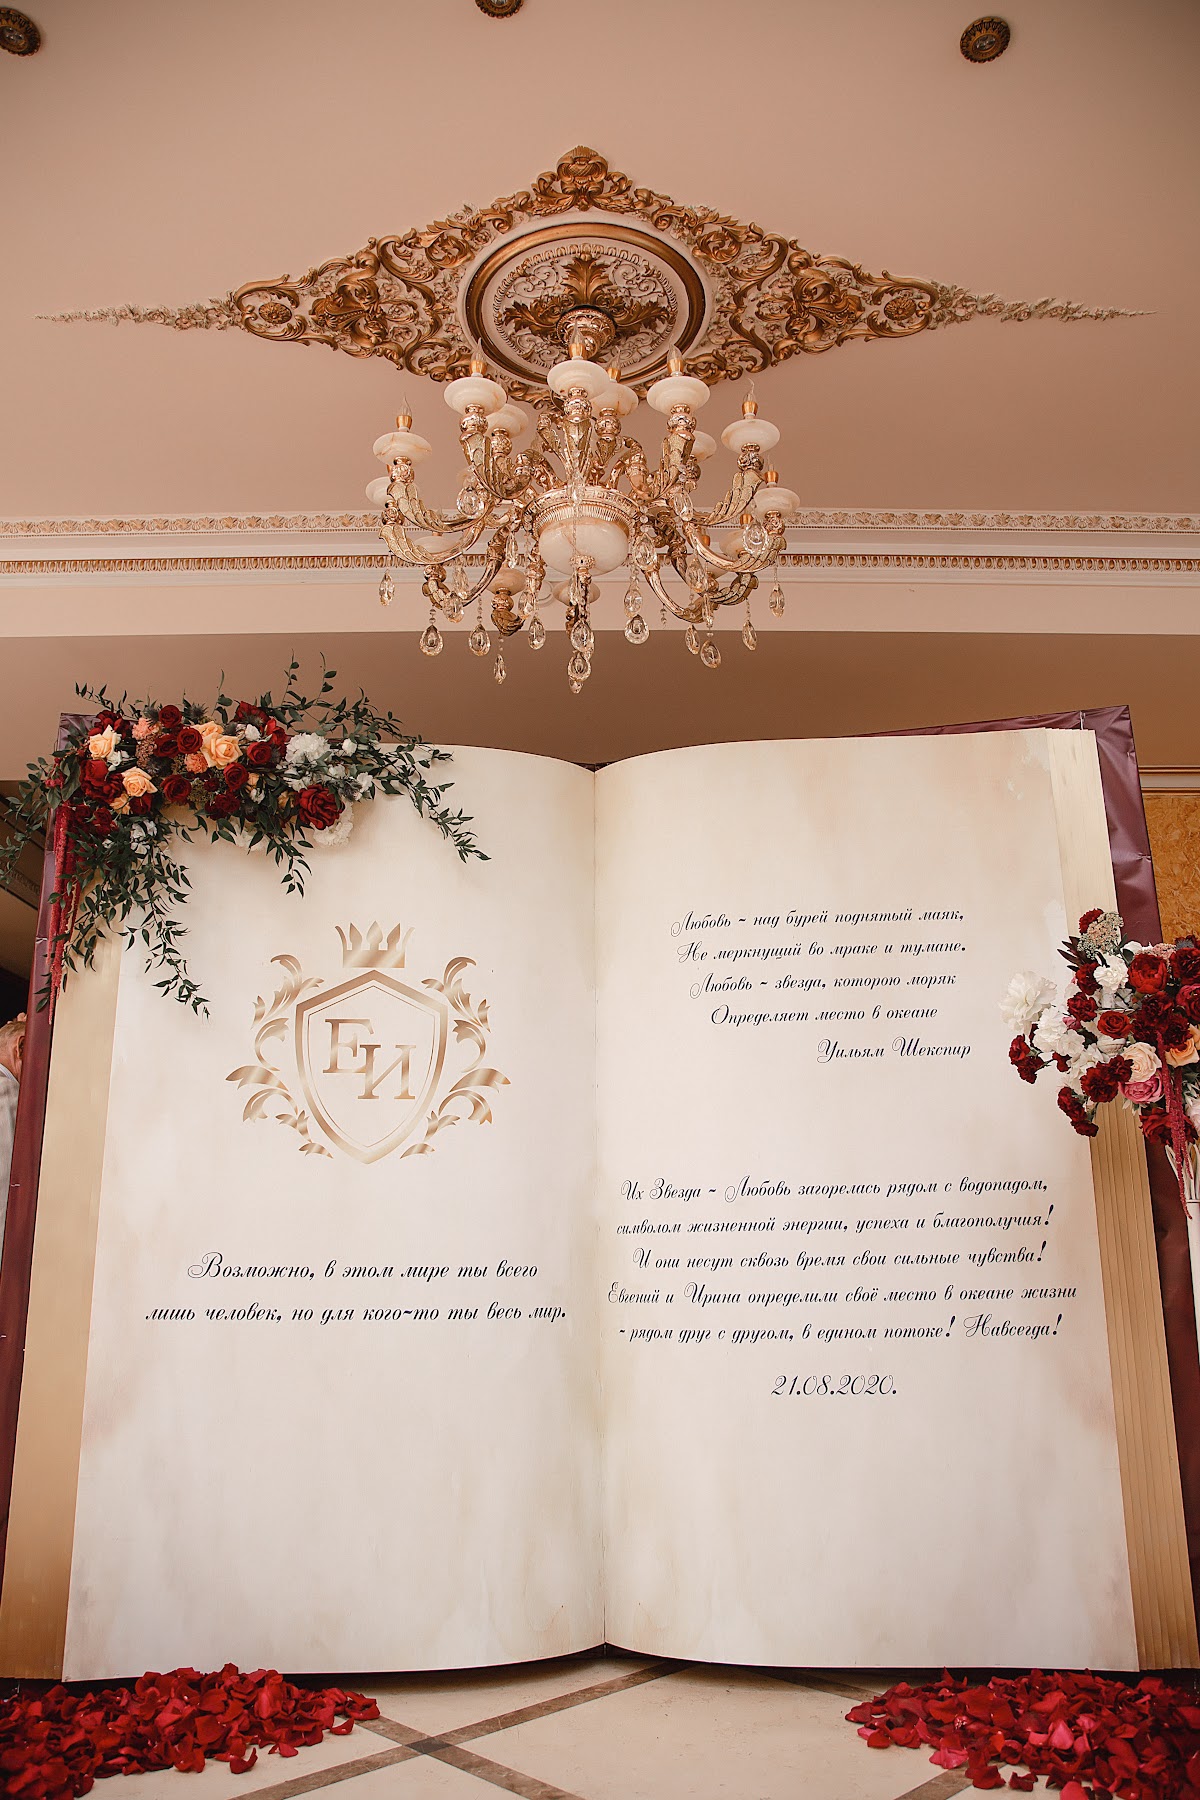 ЕИ
Возможно, в этом мире ты всего
лишь человек, но для кого-то ты весь мир.
Любовь - над бурей поднятый маяк,
Не меркнущий во мраке и тумане.
Любовь - звезда, которою моряк
Определяет место в океане
Уильям Шекспир
Их Звезда - Любовь загорелась рядом с водопадом,
символом жизненной энергии, успеха и благополучия!
И они несут сквозь время свои сильные чувства!
Евгений и Ирина определили своё место в океане жизни
- рядом друг с другом, в едином потоке! Навсегда!
21.08.2020.